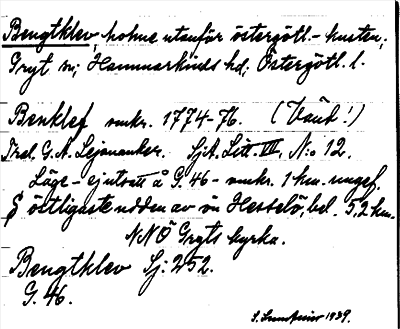 Bengtklev, holme utanför östergötl.-kusten;
Gryt sn; Hammarkinds hd; Östergötl. l.
Benklef omkr. 1774-76. (Vänd!)
G. A. Lejonanker. SjK. Litt. III, N:o 12.
Läge - ej utsatt å G. 46 - omkr. 1 km. ungef.
S östligaste udden av ön Hesselö, bel. 5,2 km.
NNÖ Gryts kyrka.
Bengtklev Sj: 252.
G. 46.
1939.